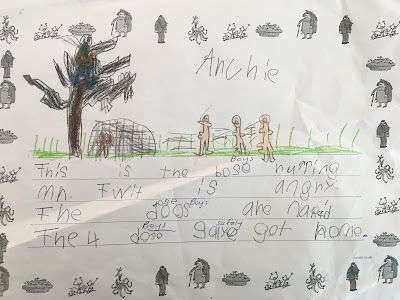 Archie
Boys
This is the bose
Mr. Twit is angry
Boys
The are nakid
Boys safely
The 4 dose got home.